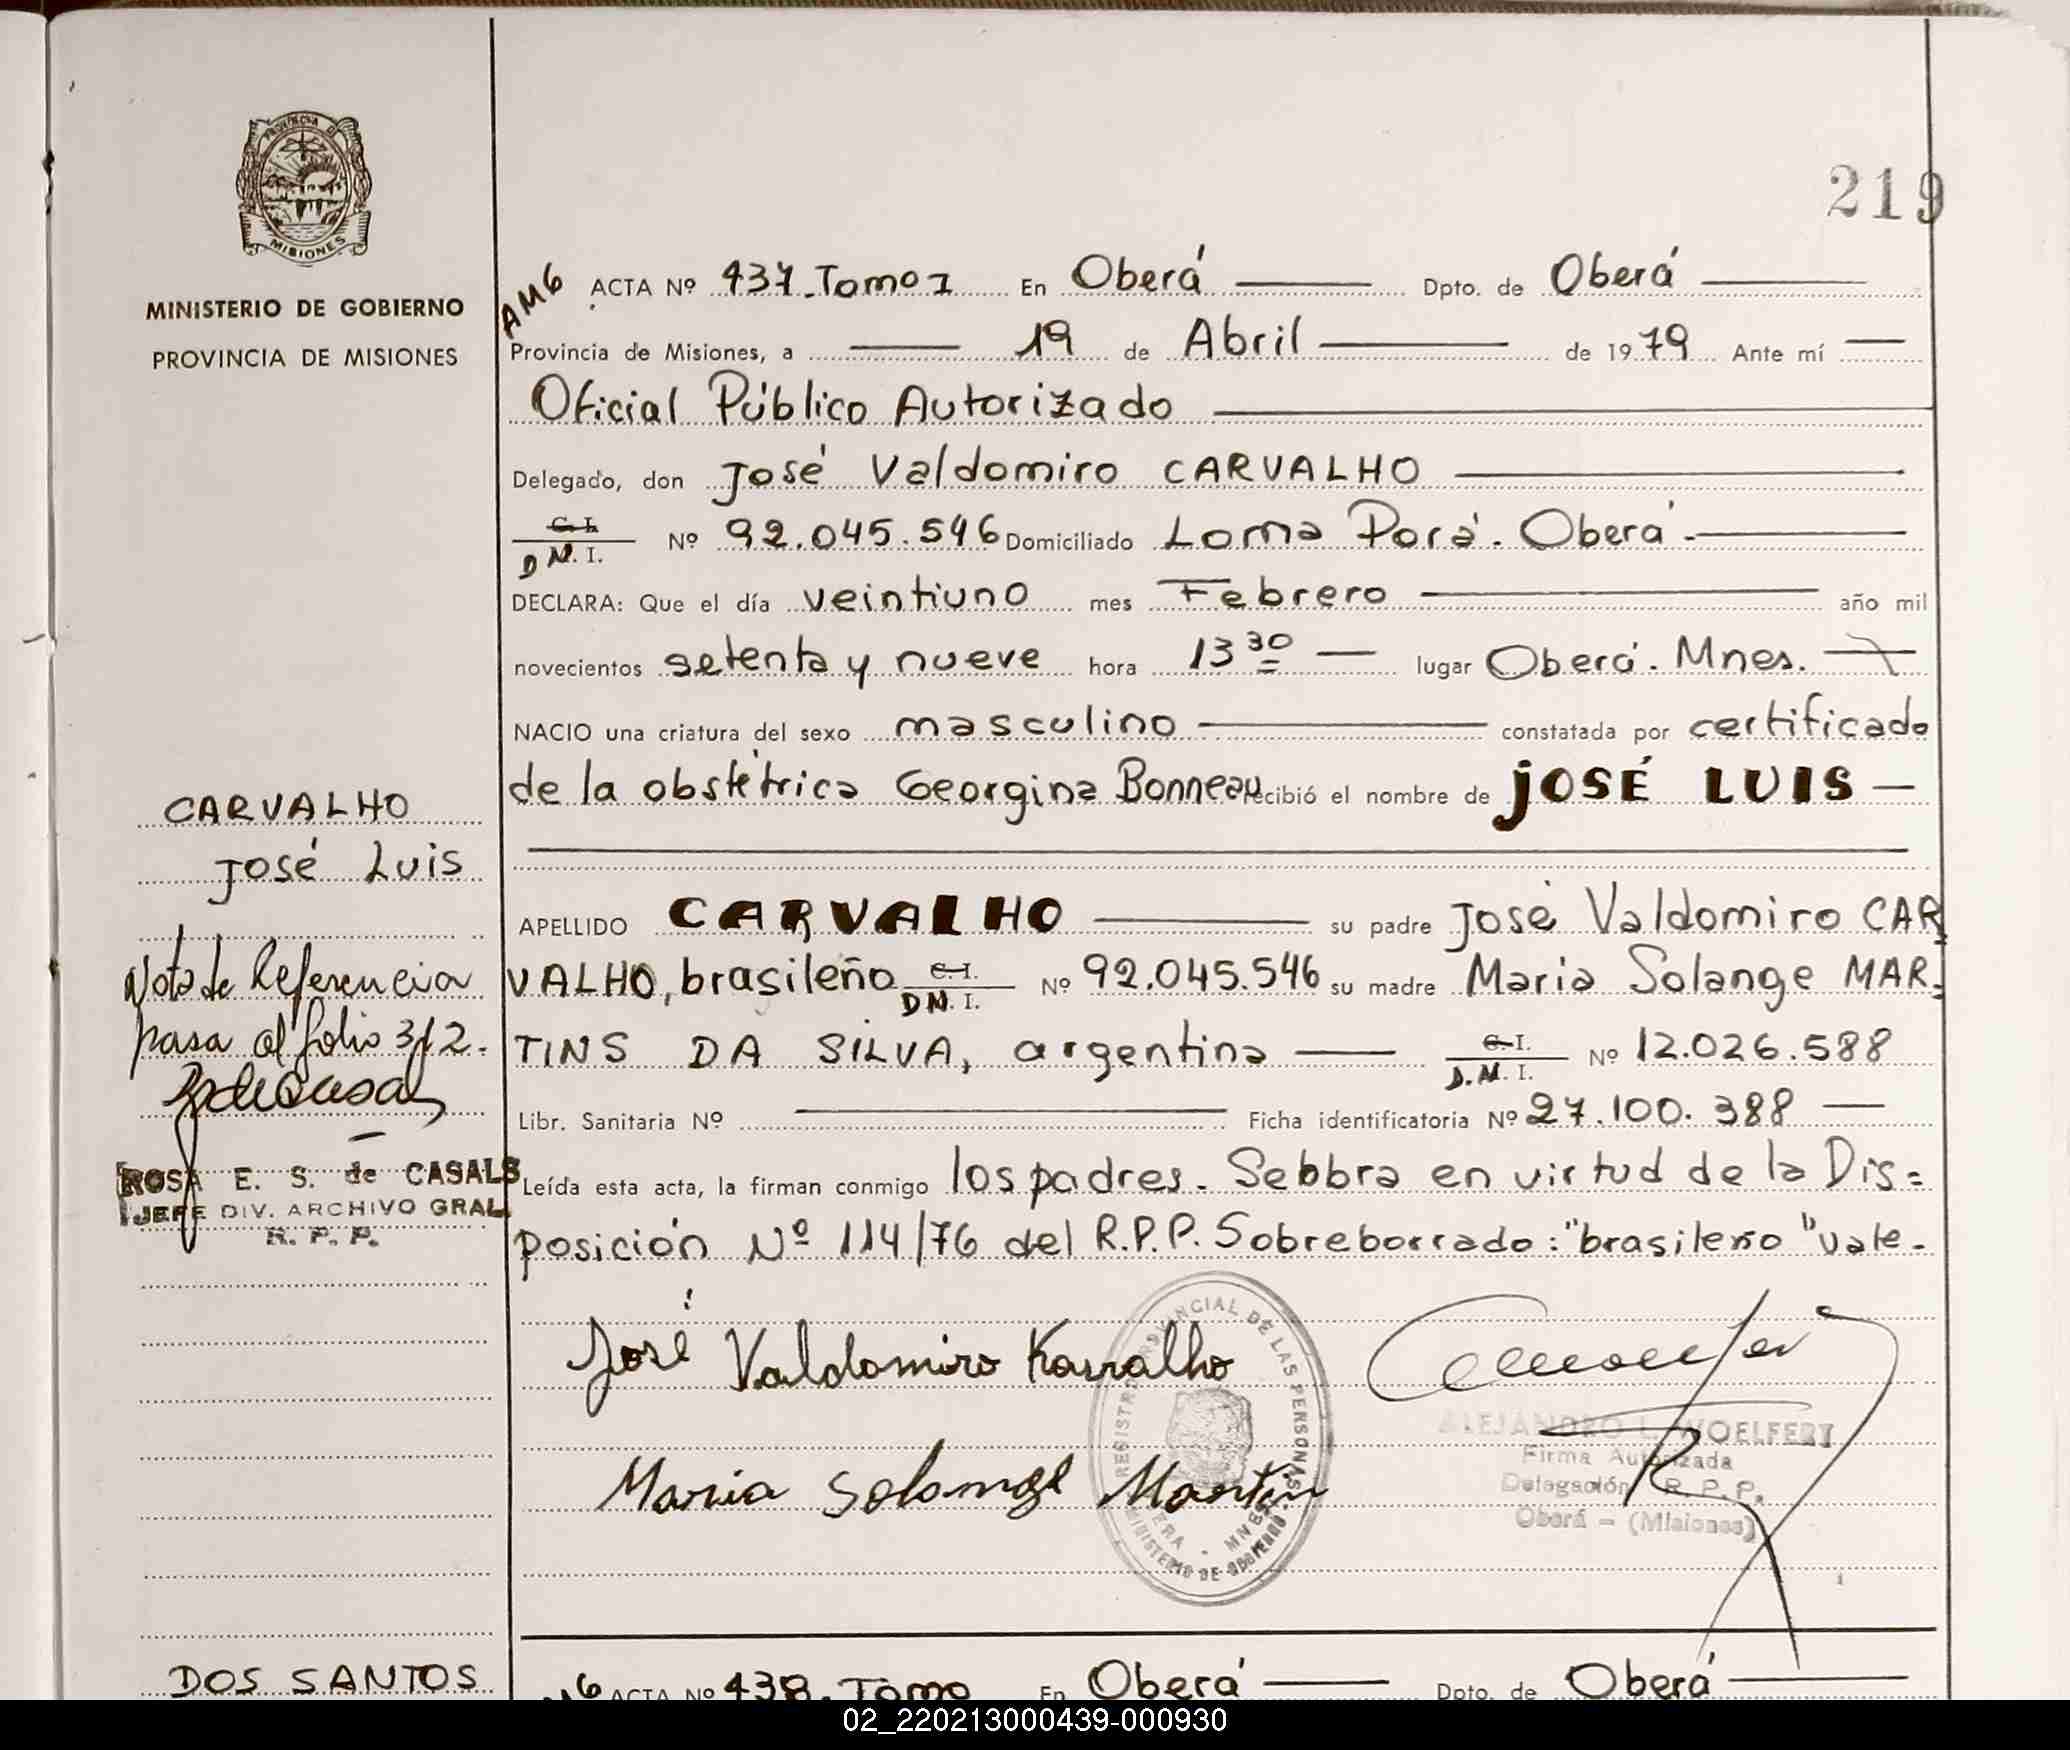 219
MINISTERIO DE GOBIERNO
PROVINCIA DE MISIONES
PROVINCIA DE
MISIONES
AM6 ACTA Nº 437. Tomo I En Oberá Dpto. de Oberá
Provincia de Misiones, a 19 de Abril de 1979 Ante mí
Oficial Público Autorizado
Delegado, don José Valdomiro CARVALHO
C. I. D N. I. Nº 92.045.546 Domiciliado Loma Porá. Oberá.
DECLARA: Que el día veintiuno mes Febrero año mil
novecientos setenta y nueve hora 13 30 lugar Oberá. Mnes.
NACIO una criatura del sexo masculino constatada por certificado
de la obstétrica Georgina Bonneau recibió el nombre de JOSÉ LUIS
APELLIDO CARVALHO su padre José Valdomiro CAR
VALHO, brasileño C. I. D N. I. Nº 92.045.546 su madre Maria Solange MAR-
TINS DA SILVA, argentina C. I. D. N. I. Nº 12.026.588
Libr. Sanitaria Nº Ficha identificatoria Nº 27.100.388
Leída esta acta, la firman conmigo los padres. Sebbra en virtud de la Dis=
posición Nº 114/76 del R.P.P. Sobreborrado: "brasileño" vale.
CARVALHO
José Luis
Nota de Referencia
pasa al folio 312.
ROSA E. S. de CASALS
JEFE DIV. ARCHIVO GRAL.
R. P. P.
José Valdomiro Karvalho
Maria Solange Martin
REGISTRO PROVINCIAL DE LAS PERSONAS
OBERA - MNES
MINISTERIO DE GOBIERNO
ALEJANDRO L. WOELFERT
Firma Autorizada
Delegación R. P. P.
Oberá - (Misiones)
DOS SANTOS
ACTA Nº 438. Tomo En Oberá Dpto. de Oberá
02_220213000439-000930